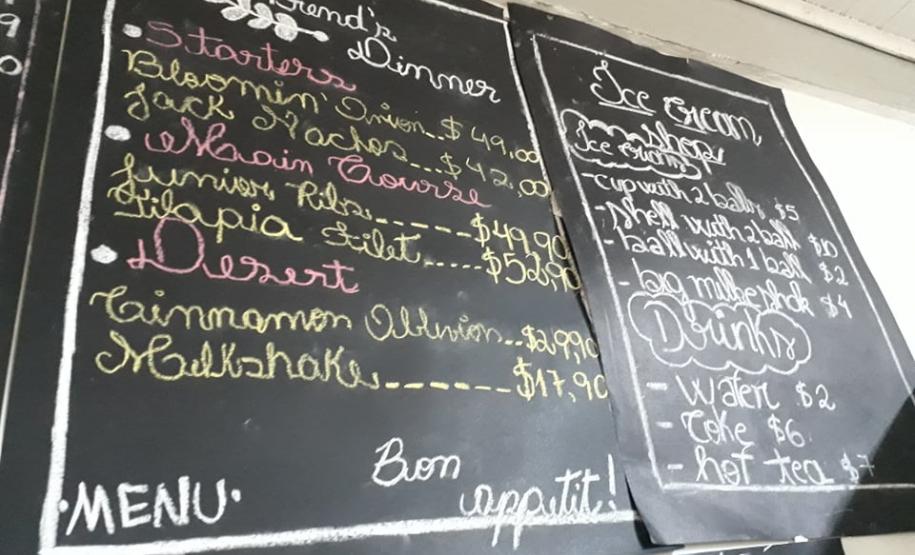 rend's
Dinner
Starters
Bloomin' Onion..$ 49,00
Jack Nachos...$ 42,00
Main Course
Junior Ribs------$49,90
Tilapia Filet.....$52,90
Desert
Cinnamon Oblivion..$29,90
Milkshake-------$17,90
Bon
appetit!
MENU
Ice Cream
shop
Ice Cream
-cup with 2 balls $5
-shell with 2 ball $10
-ball with 1 ball $2
- big milkeshak $4
Drinks
- water $2
- Coke $6
- hot tea $7
9
0